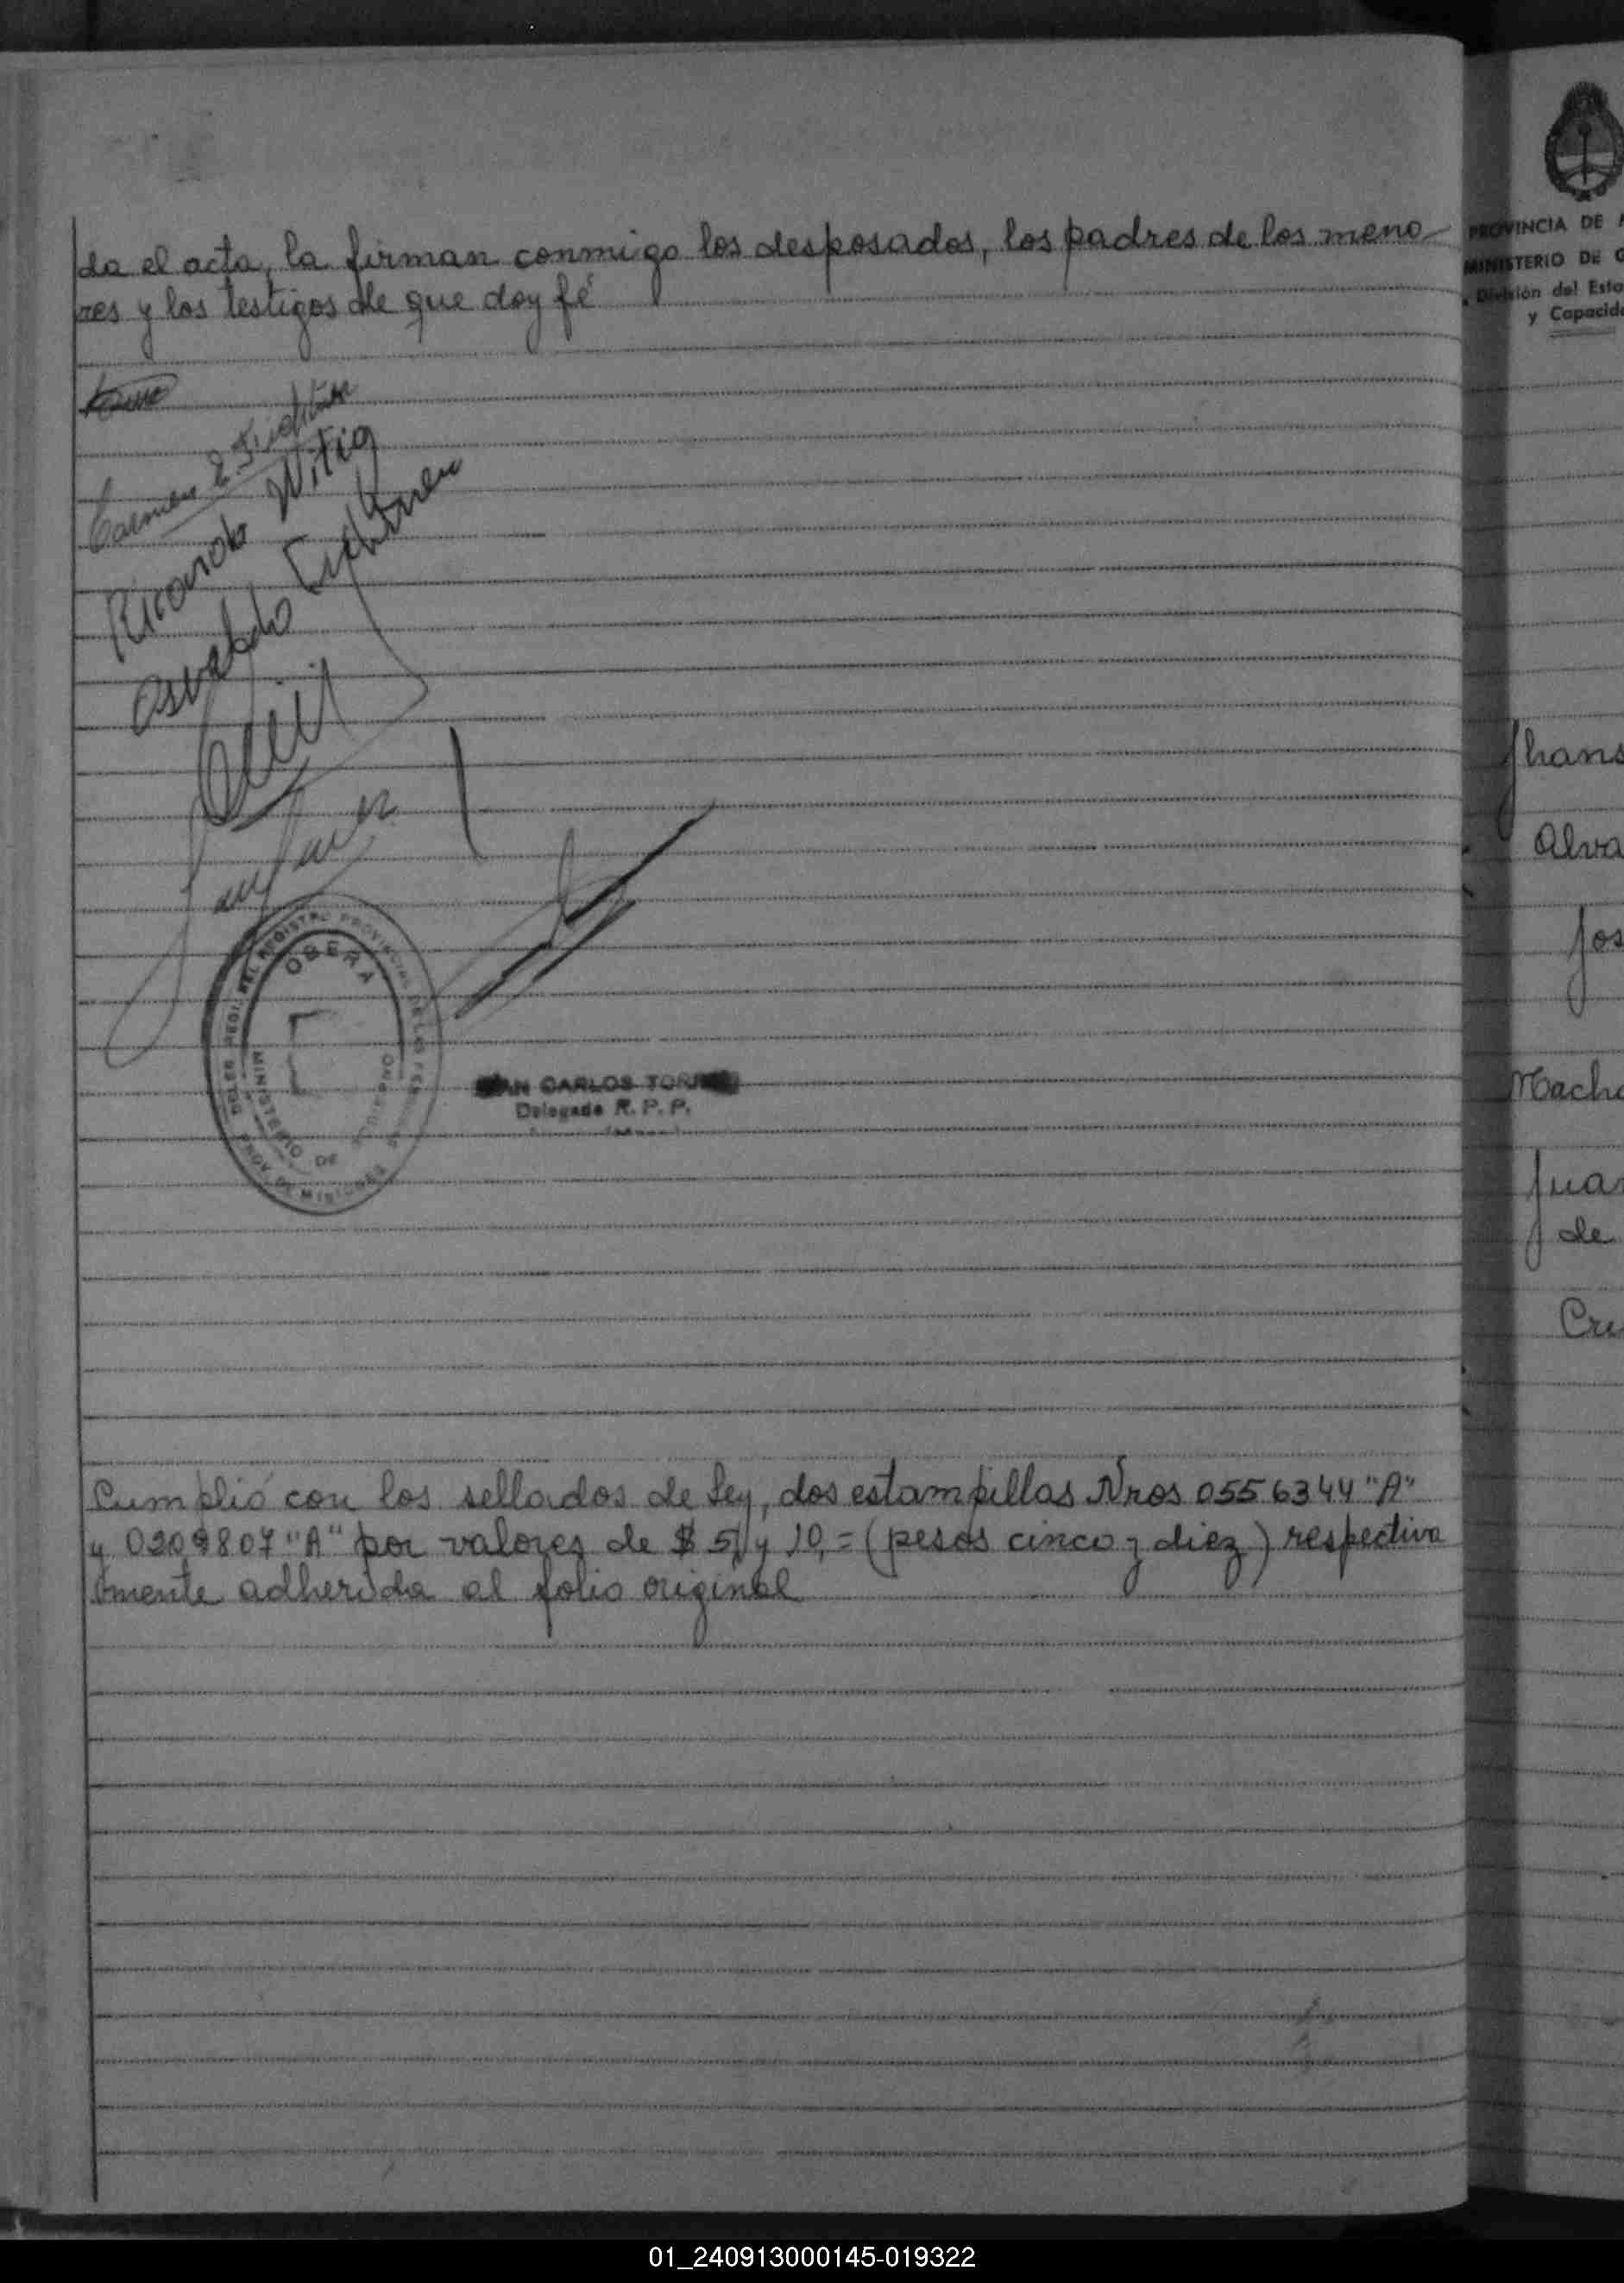 da el acta, la firman conmigo los desposados, los padres de los meno
res y los testigos de que doy fé
Carmen
Ricardo Witig
Osvaldo
OBERA
MINISTERIO DE
PROV. DE MISIONES
AN CARLOS TORR
Delegado R. P. P.
Cumplió con los sellados de Ley, dos estampillas Nros 0556344 "A"
y 0209807 "A" por valores de $ 5 y 10,= (pesos cinco y diez) respectiva
mente adherida al folio original
PROVINCIA DE
MINISTERIO DE G
División del Esta
y Capacida
Jhans
Alva
Jos
Macha
Jua
de
Cri
01_240913000145-019322